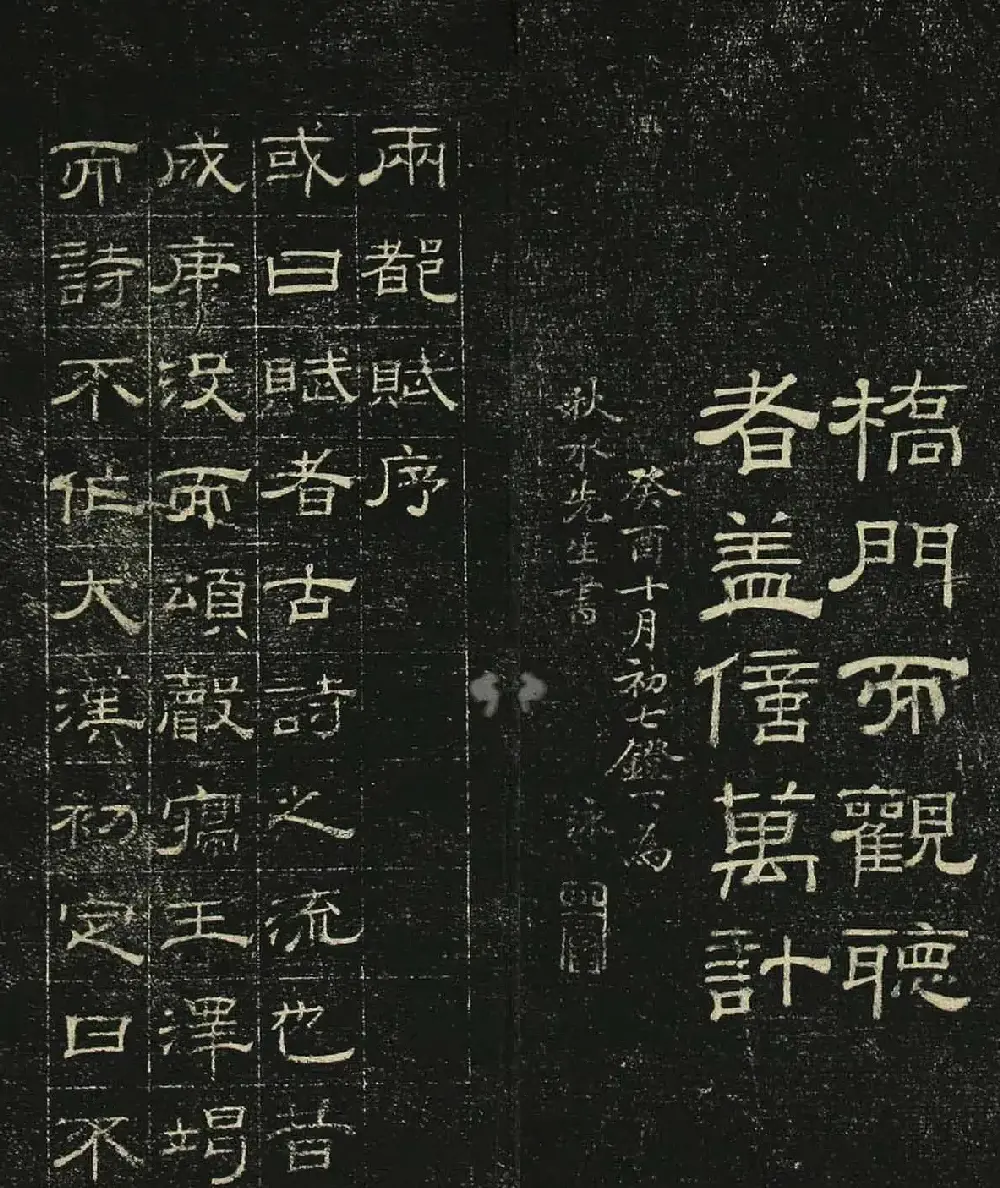 橋門而觀聽
者盖億萬計
癸酉十月初七鐙下為
秋水先生書 泳
兩都賦序
或曰賦者古詩之流也昔
成康沒而頌聲寢王澤竭
而詩不作大漢初定日不